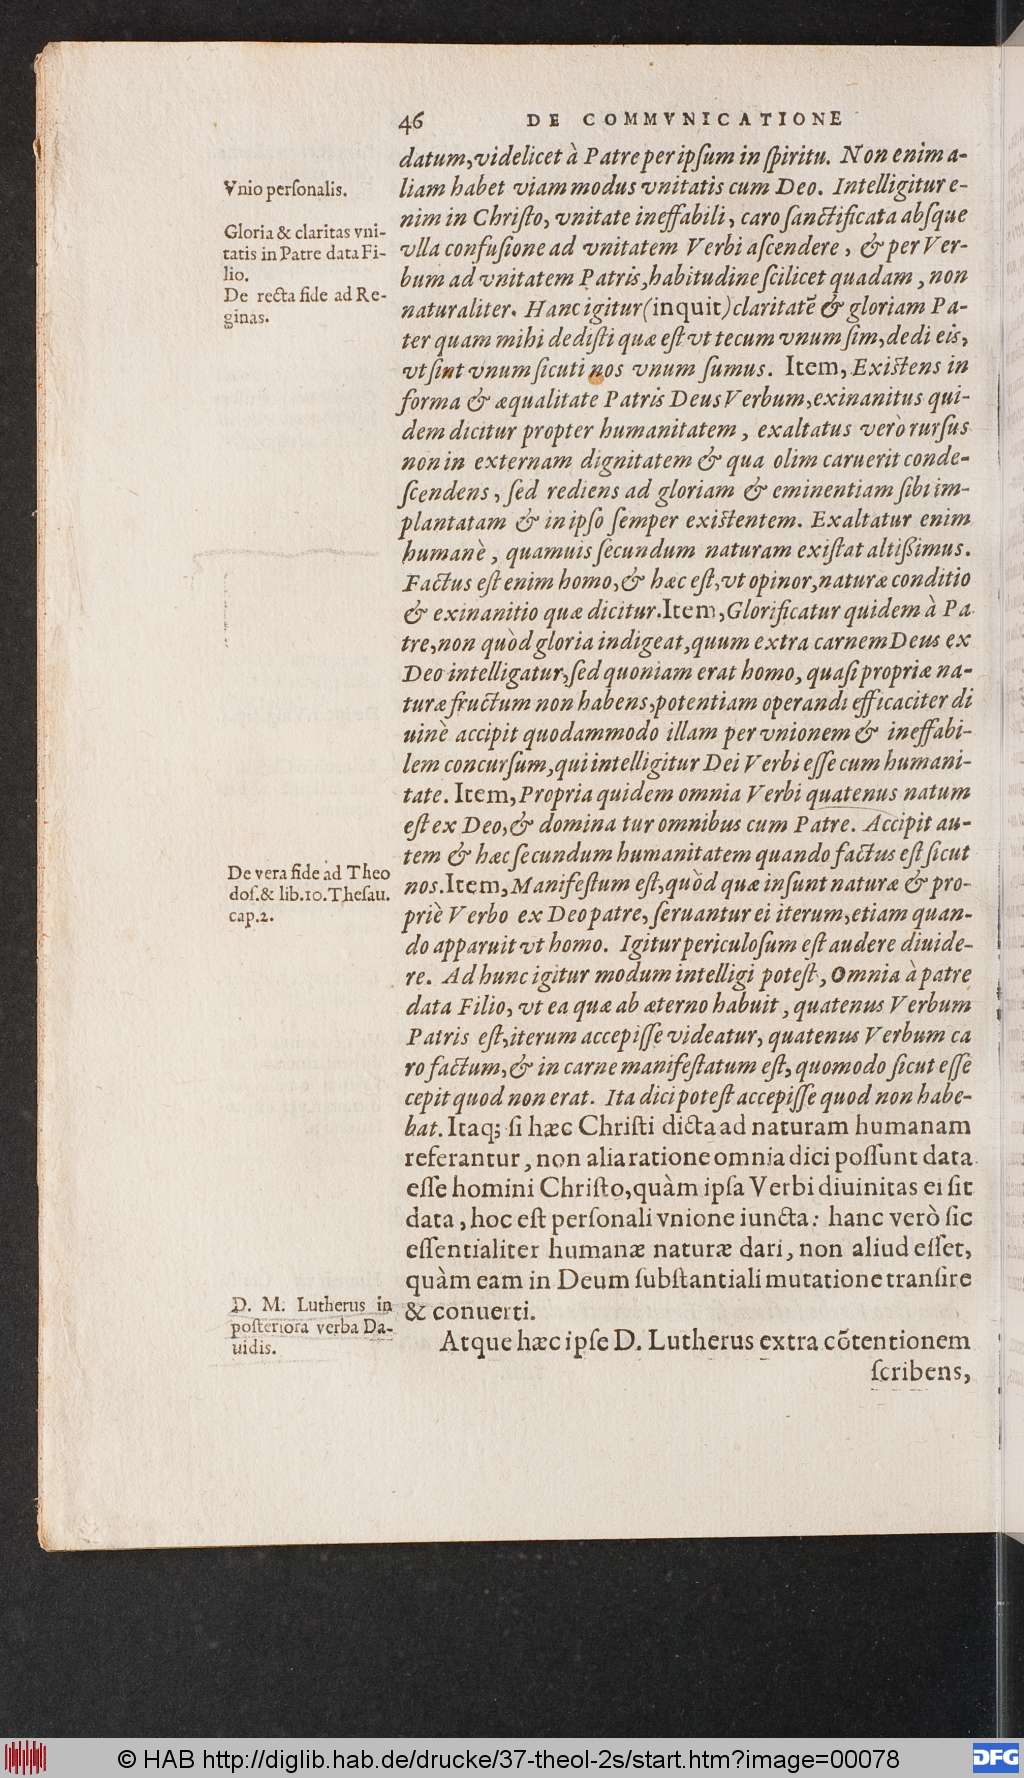 46 DE COMMVNICATIONE
datum, videlicet à Patre per ipſum in ſpiritu. Non enim a-
liam habet viam modus vnitatis cum Deo. Intelligitur e-
nim in Chriſto, vnitate ineffabili, caro ſanctificata abſque
vlla confuſione ad vnitatem Verbi aſcendere, & per Ver-
bum ad vnitatem Patris, habitudine ſcilicet quadam, non
naturaliter. Hanc igitur (inquit) claritatē & gloriam Pa-
ter quam mihi dediſti quæ eſt vt tecum vnum ſim, dedi eis,
vt ſint vnum ſicuti nos vnum ſumus. Item, Exiſtens in
forma & æqualitate Patris Deus Verbum, exinanitus qui-
dem dicitur propter humanitatem, exaltatus verò rurſus
non in externam dignitatem & qua olim caruerit conde-
ſcendens, ſed rediens ad gloriam & eminentiam ſibi im-
plantatam & in ipſo ſemper exiſtentem. Exaltatur enim
humanè, quamuis ſecundum naturam exiſtat altißimus.
Factus eſt enim homo, & hæc eſt, vt opinor, naturæ conditio
& exinanitio quæ dicitur. Item, Glorificatur quidem à Pa
tre, non quòd gloria indigeat, quum extra carnem Deus ex
Deo intelligatur, ſed quoniam erat homo, quaſi propriæ na-
turæ fructum non habens, potentiam operandi efficaciter di
uinè accipit quodammodo illam per vnionem & ineffabi-
lem concurſum, qui intelligitur Dei Verbi eſſe cum humani-
tate. Item, Propria quidem omnia Verbi quatenus natum
eſt ex Deo, & domina tur omnibus cum Patre. Accipit au-
tem & hæc ſecundum humanitatem quando factus eſt ſicut
nos. Item, Manifeſtum eſt, quòd quæ inſunt naturæ & pro-
priè Verbo ex Deo patre, ſeruantur ei iterum, etiam quan-
do apparuit vt homo. Igitur periculoſum eſt audere diuide-
re. Ad hunc igitur modum intelligi poteſt, Omnia à patre
data Filio, vt ea quæ ab æterno habuit, quatenus Verbum
Patris eſt, iterum accepiſſe videatur, quatenus Verbum ca
ro factum, & in carne manifeſtatum eſt, quomodo ſicut eſſe
cepit quod non erat. Ita dici poteſt accepiſſe quod non habe-
bat. Itaq; ſi hæc Chriſti dicta ad naturam humanam
referantur, non alia ratione omnia dici poſſunt data
eſſe homini Chriſto, quàm ipſa Verbi diuinitas ei ſit
data, hoc eſt perſonali vnione iuncta: hanc verò ſic
eſſentialiter humanæ naturæ dari, non aliud eſſet,
quàm eam in Deum ſubſtantiali mutatione tranſire
& conuerti.
Atque hæc ipſe D. Lutherus extra cōtentionem
ſcribens,
Vnio perſonalis.
Gloria & claritas vni-
tatis in Patre data Fi-
lio.
De recta fide ad Re-
ginas.
De vera fide ad Theo
doſ. & lib. 10. Theſau.
cap. 2.
D. M. Lutherus in
poſteriora verba Da-
uidis.
© HAB http://diglib.hab.de/drucke/37-theol-2s/start.htm?image=00078
DFG